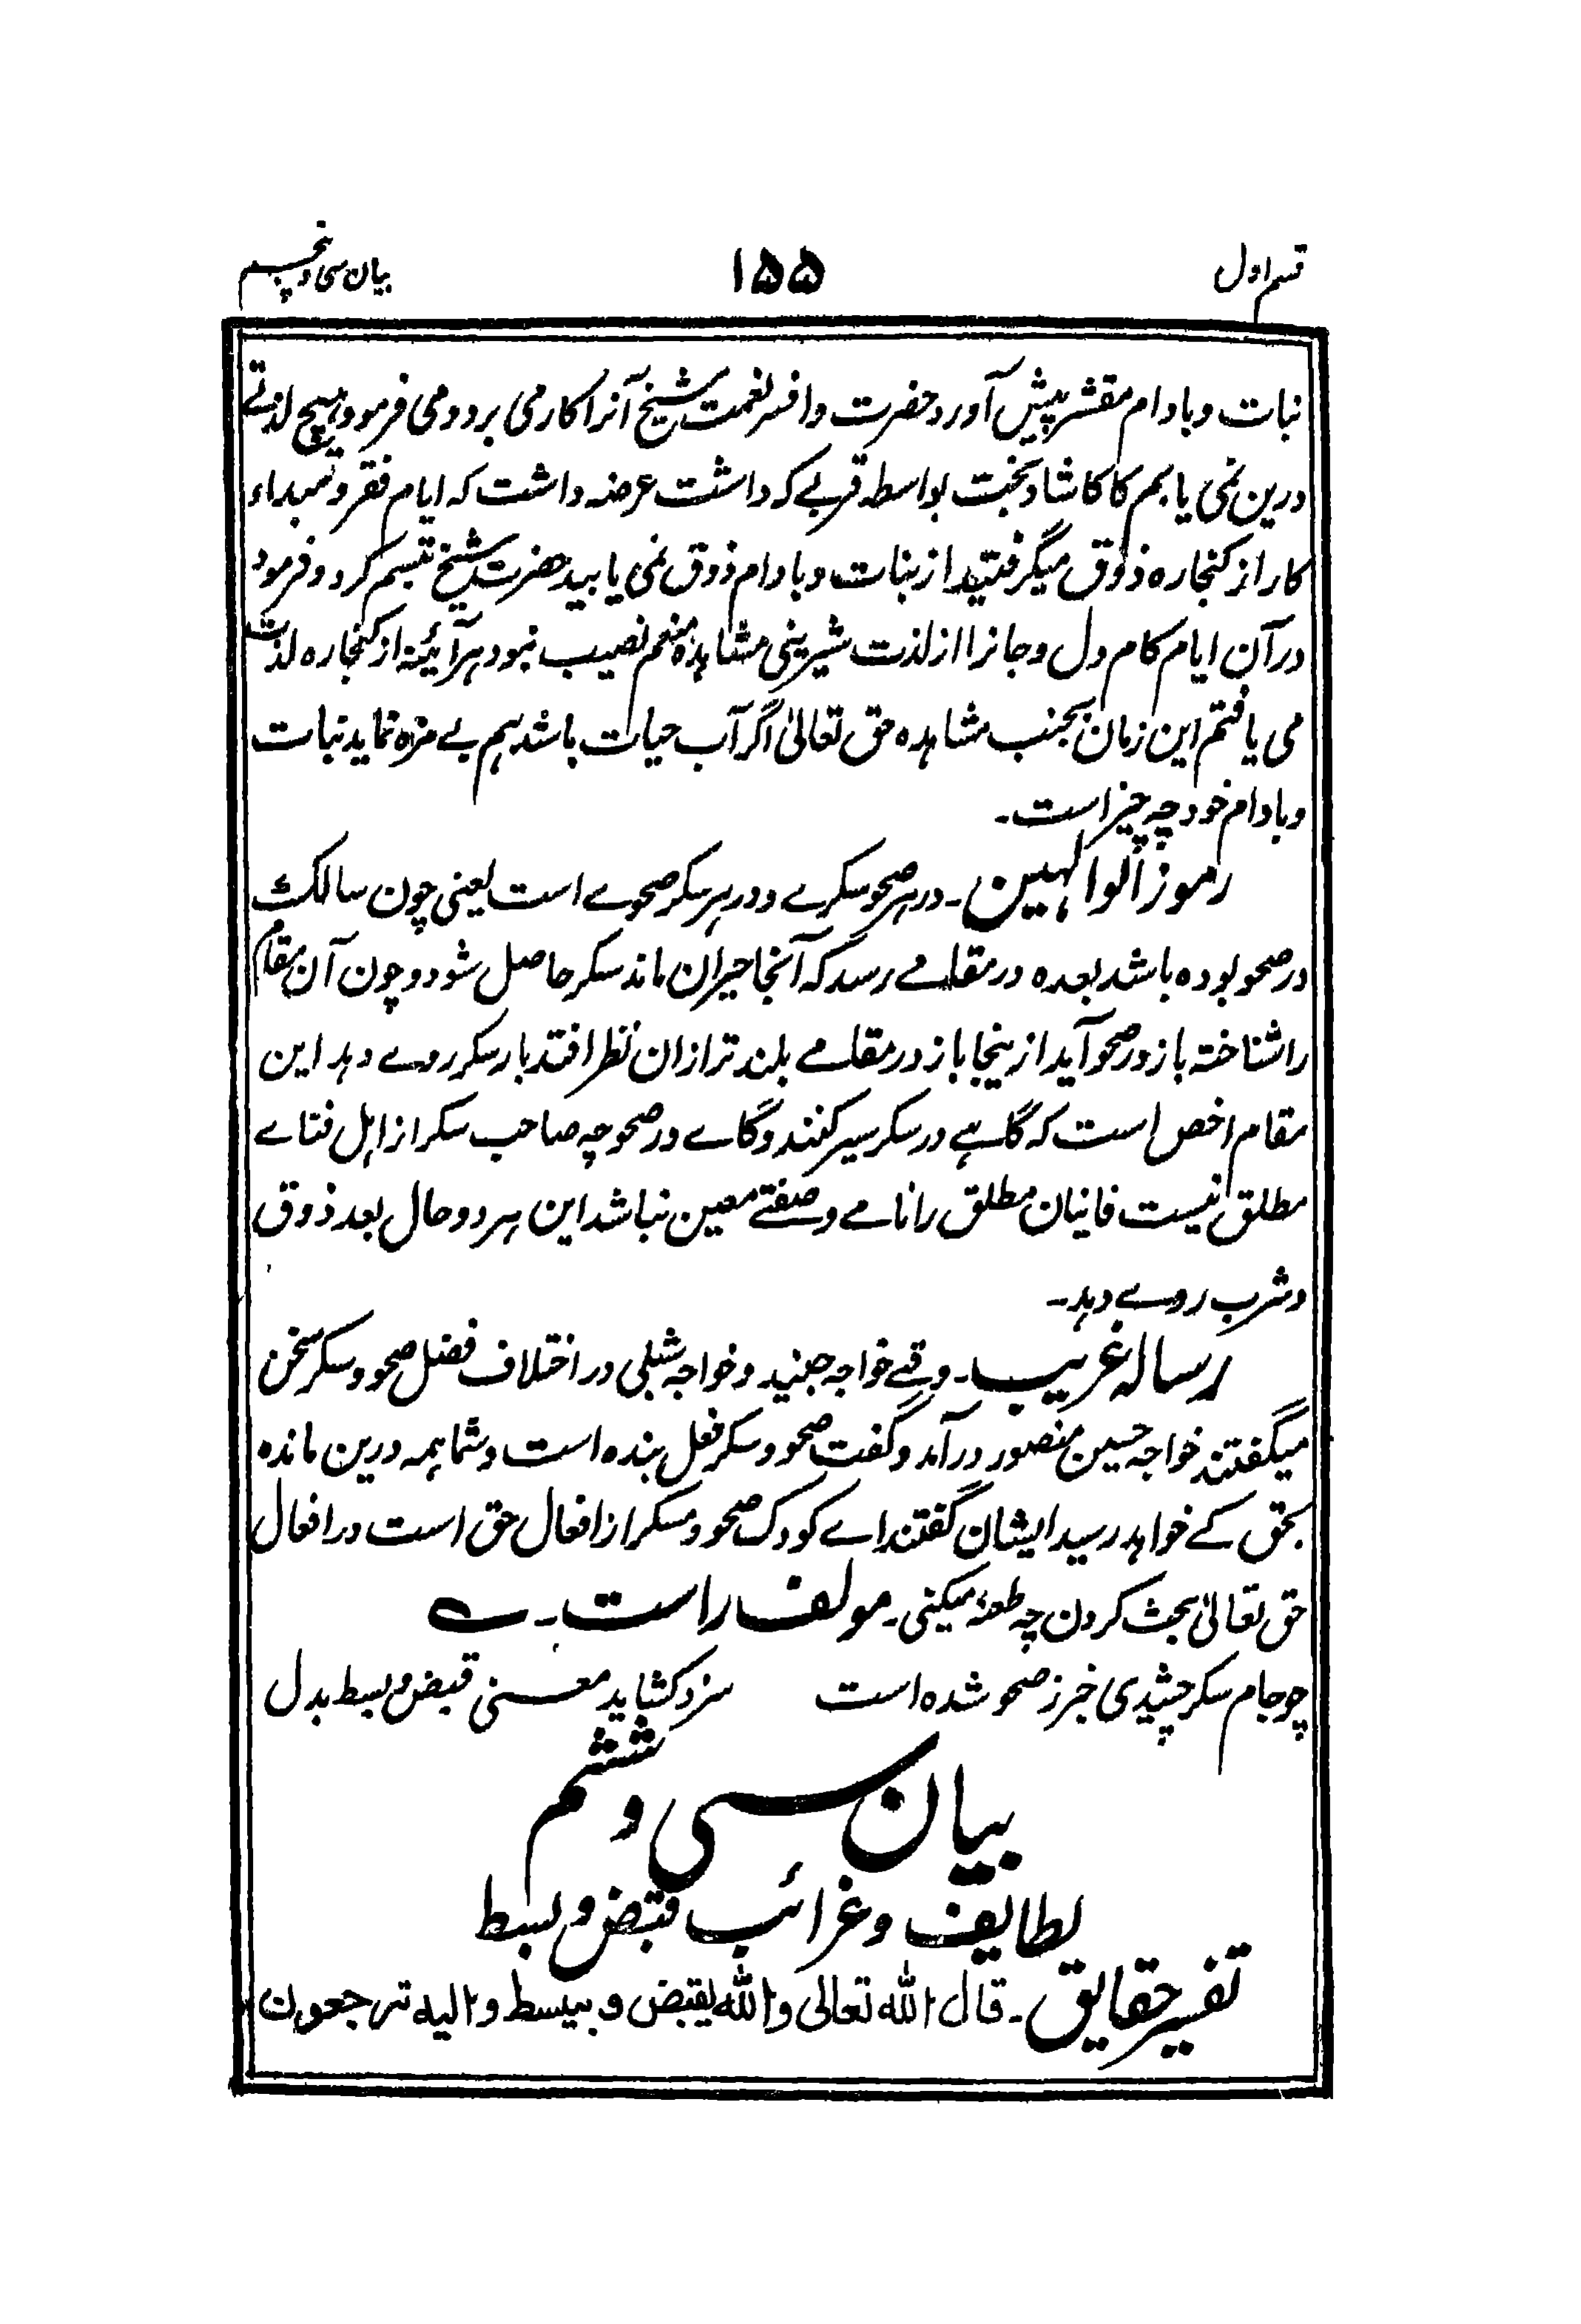 قسم اول
۱۵۵
بیان سی و پنجم
نبات و بادام مقشر پیش آورد حضرت وافر نعمت شیخ آنرا کار می برد و می فرمود هیچ لذتے
درین نمی یابم کاکا شاد بخت بواسطه قربے که داشت عرضه داشت که ایام فقر و مبداء
کار از کنجاره ذوق میگرفتید از نبات و بادام ذوق نمی یابید حضرت شیخ تبسم کرد و فرمود
در آن ایام کام دل و جانرا از لذت شیرینی مشاهده منعم نصیب نبود هر آئینه از کنجاره لذت
می یافتم این زمان بجنب مشاهده حق تعالیٰ اگر آب حیات باشد هم بے مزه نماید نبات
و بادام خود چه چیز است۔
رموز الوالهین۔ در هر صحو سکرے و در هر سکر صحوے است یعنی چون سالک
در صحو بوده باشد بعده در مقامے رسد که آنجا حیران ماند سکر حاصل شود و چون آن مقام
را شناخته باز در صحو آید از ینجا باز در مقامے بلند تر ازان نظر افتد بار سکر روے دهد این
مقام اخص است که گاهے در سکر سیر کنند و گاے در صحو چه صاحب سکر از اهل فناے
مطلق نیست فانیان مطلق را نامے و صفتے معین نباشد این هر دو حال بعد ذوق
و شرب روے دهد۔
رساله غریب۔ وقتے خواجه جنید و خواجه شبلی در اختلاف فضل صحو و سکر سخن
میگفتند خواجه حسین منصور در آمد و گفت صحو و سکر فعل بنده است و شما همه درین مانده
بحق کے خواهد رسید ایشان گفتند اے کودک صحو و سکر از افعال حق است در افعال
حق تعالیٰ بحث کردن چه طعنه میکنی۔ مولف راست۔ ے
چو جام سکر چشیدی خبر ز صحو شده است سزد کشاید معنی قبض و بسط بدل
بیان سی و ششم
لطایف و غرائب قبض و بسط
تفسیر حقایق۔ قال الله تعالی والله یقبض و یبسط و الیه ترجعون